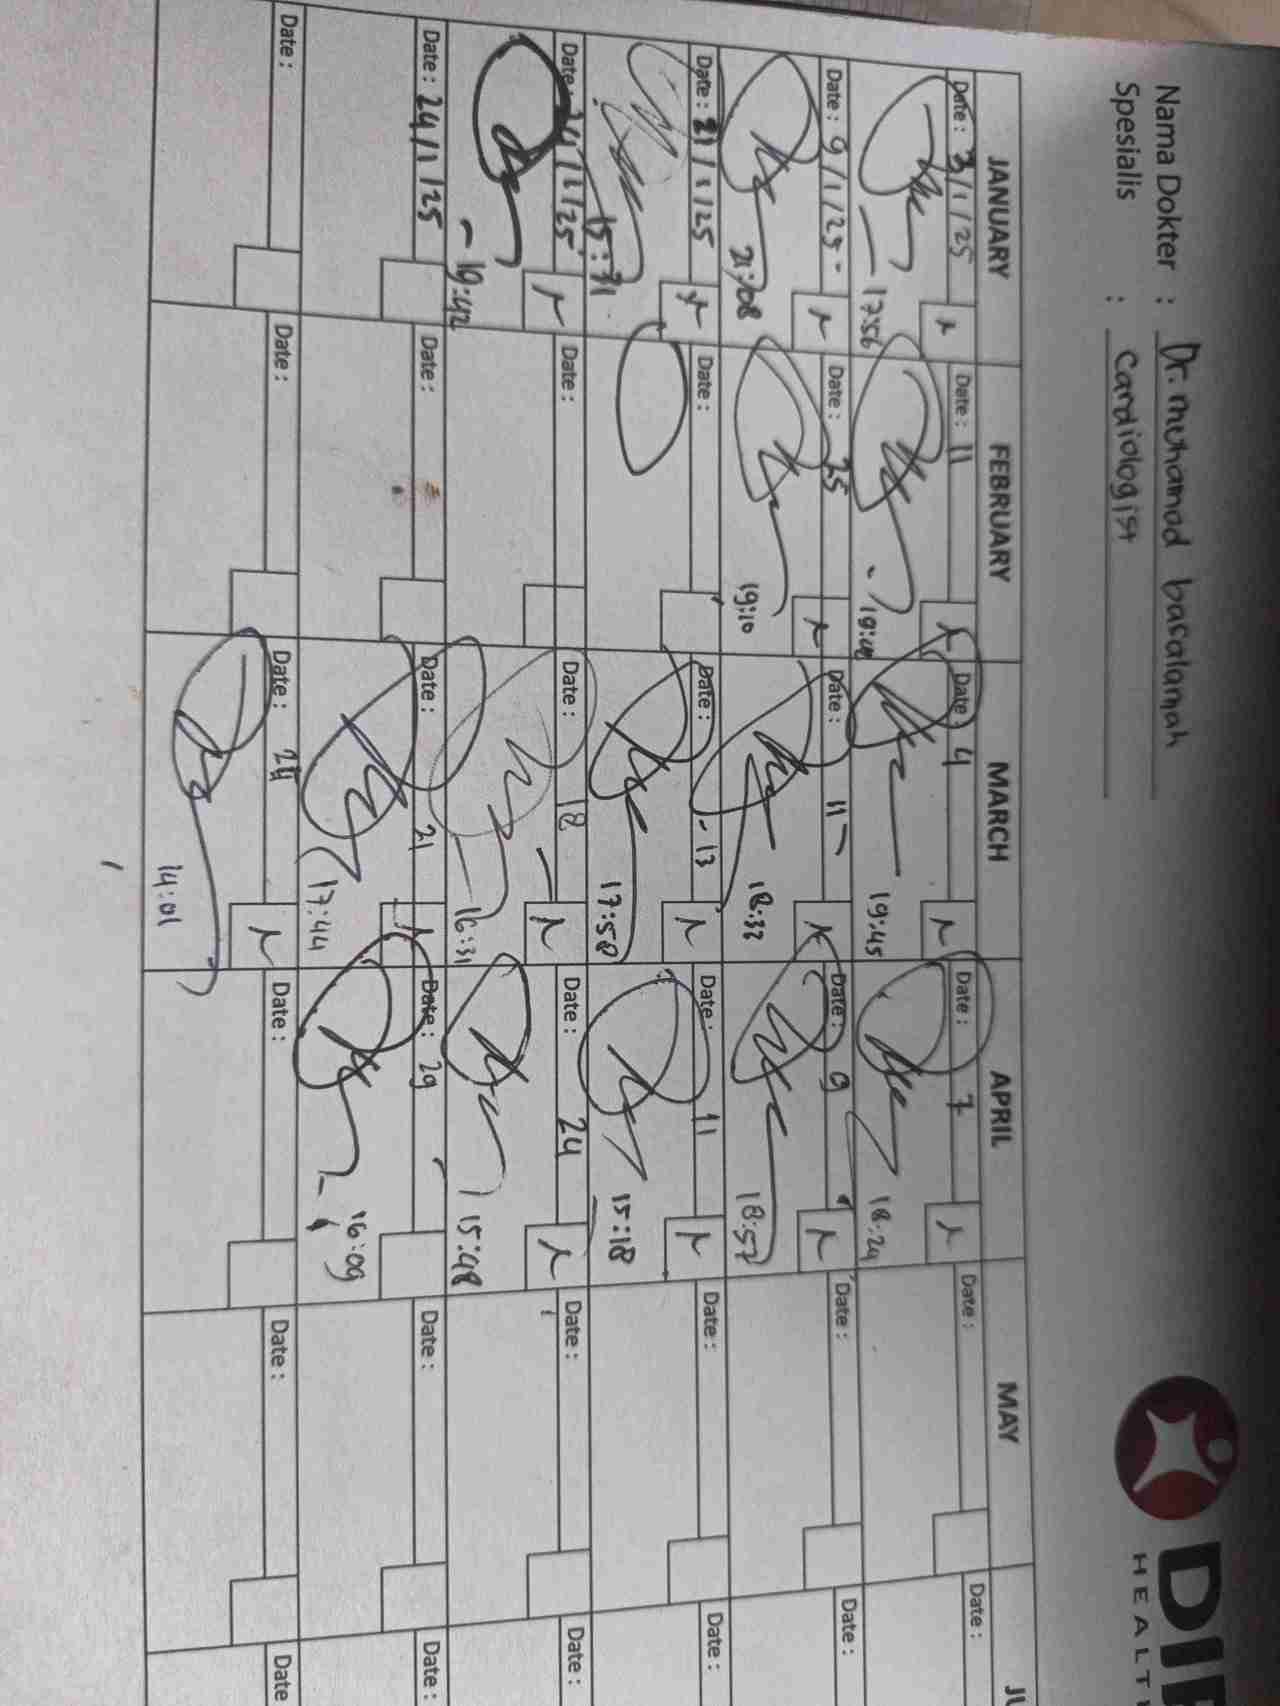 Nama Dokter : Dr. muhamad basalamah
Spesialis : Cardiologist
DI
HEALT
JANUARY FEBRUARY MARCH APRIL MAY JU
Date : 3/1/25 Date : 11 Date : 4 Date : 7 Date : Date :
17:56 19:45 18:24
Date : 9/1/25 Date : 25 Date : 11 Date : 9 Date : Date :
21:08 19:10 18:32 18:57
Date : 21/1/25 Date : Date : 13 Date : 11 Date : Date :
15:31 17:58 15:18
Date : 24/1/25 Date : Date : 18 Date : 24 Date : Date :
19:42 16:31 15:48
Date : 24/1/25 Date : Date : 21 Date : 29 Date : Date :
17:44 16:09
Date : Date : Date : 24 Date : Date : Date
14:01